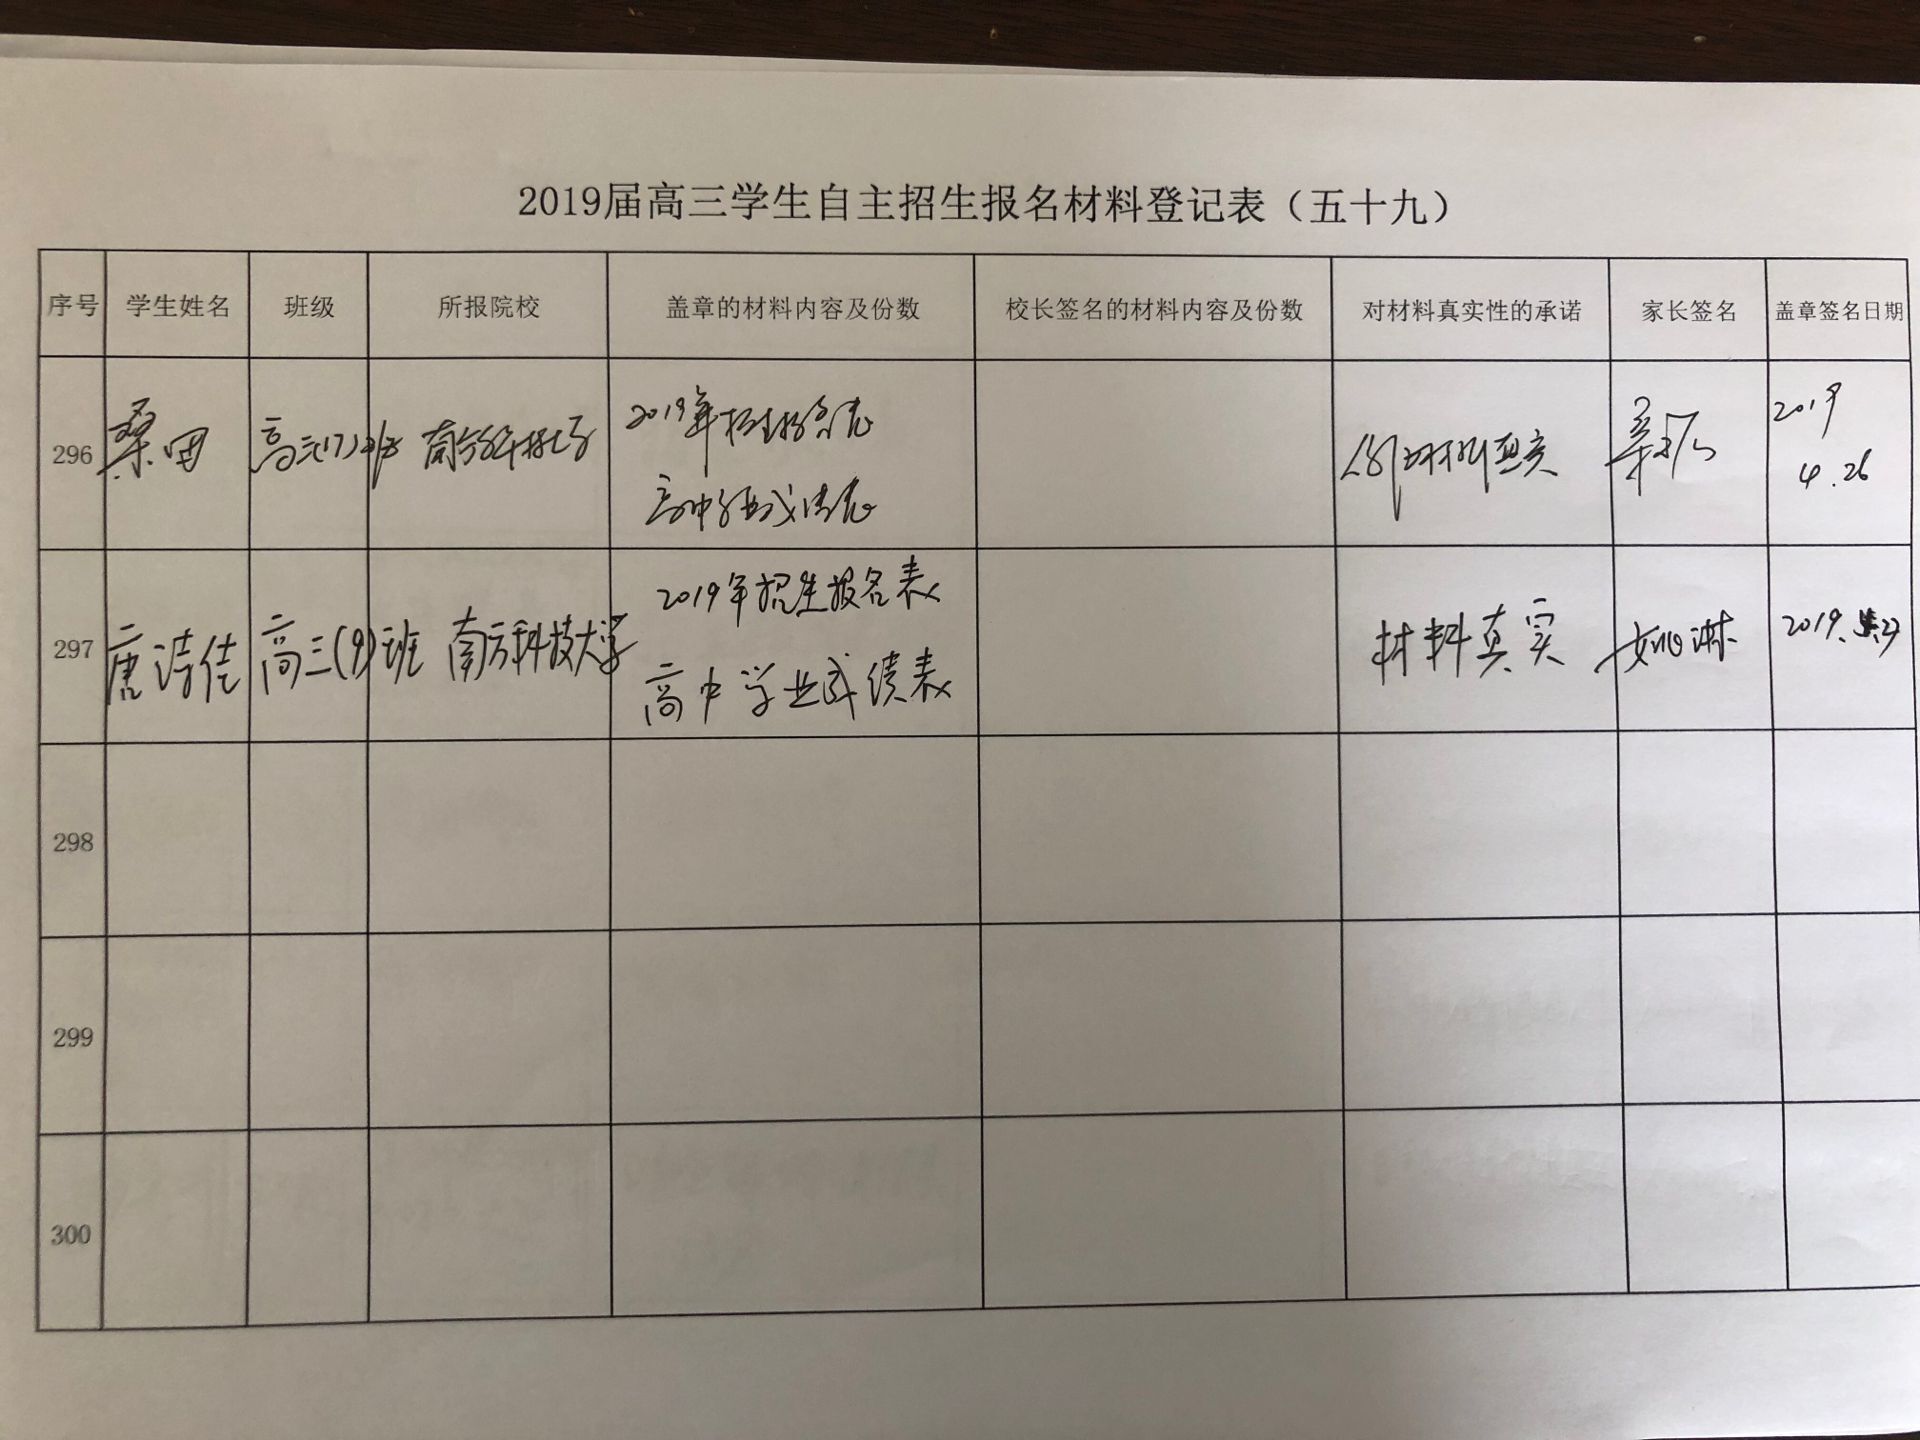 2019届高三学生自主招生报名材料登记表（五十九）
序号 学生姓名 班级 所报院校 盖章的材料内容及份数 校长签名的材料内容及份数 对材料真实性的承诺 家长签名 盖章签名日期
296 桑田 高三(7)班 南方科技大学 2019年招生报名表 材料真实 2019
高中学业成绩表 4.26
297 唐诗佳 高三(9)班 南方科技大学 2019年招生报名表 材料真实 姚淋 2019.
高中学业成绩表
298
299
300